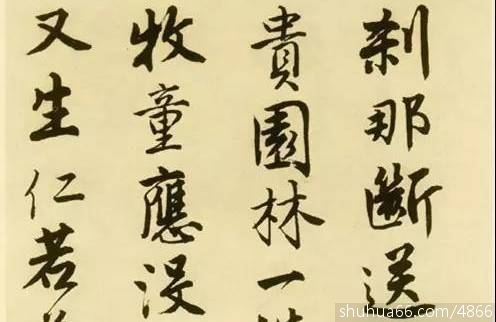 刹那斷送
貴園林一
牧童應没
又生仁若
shuhua66.com/4866